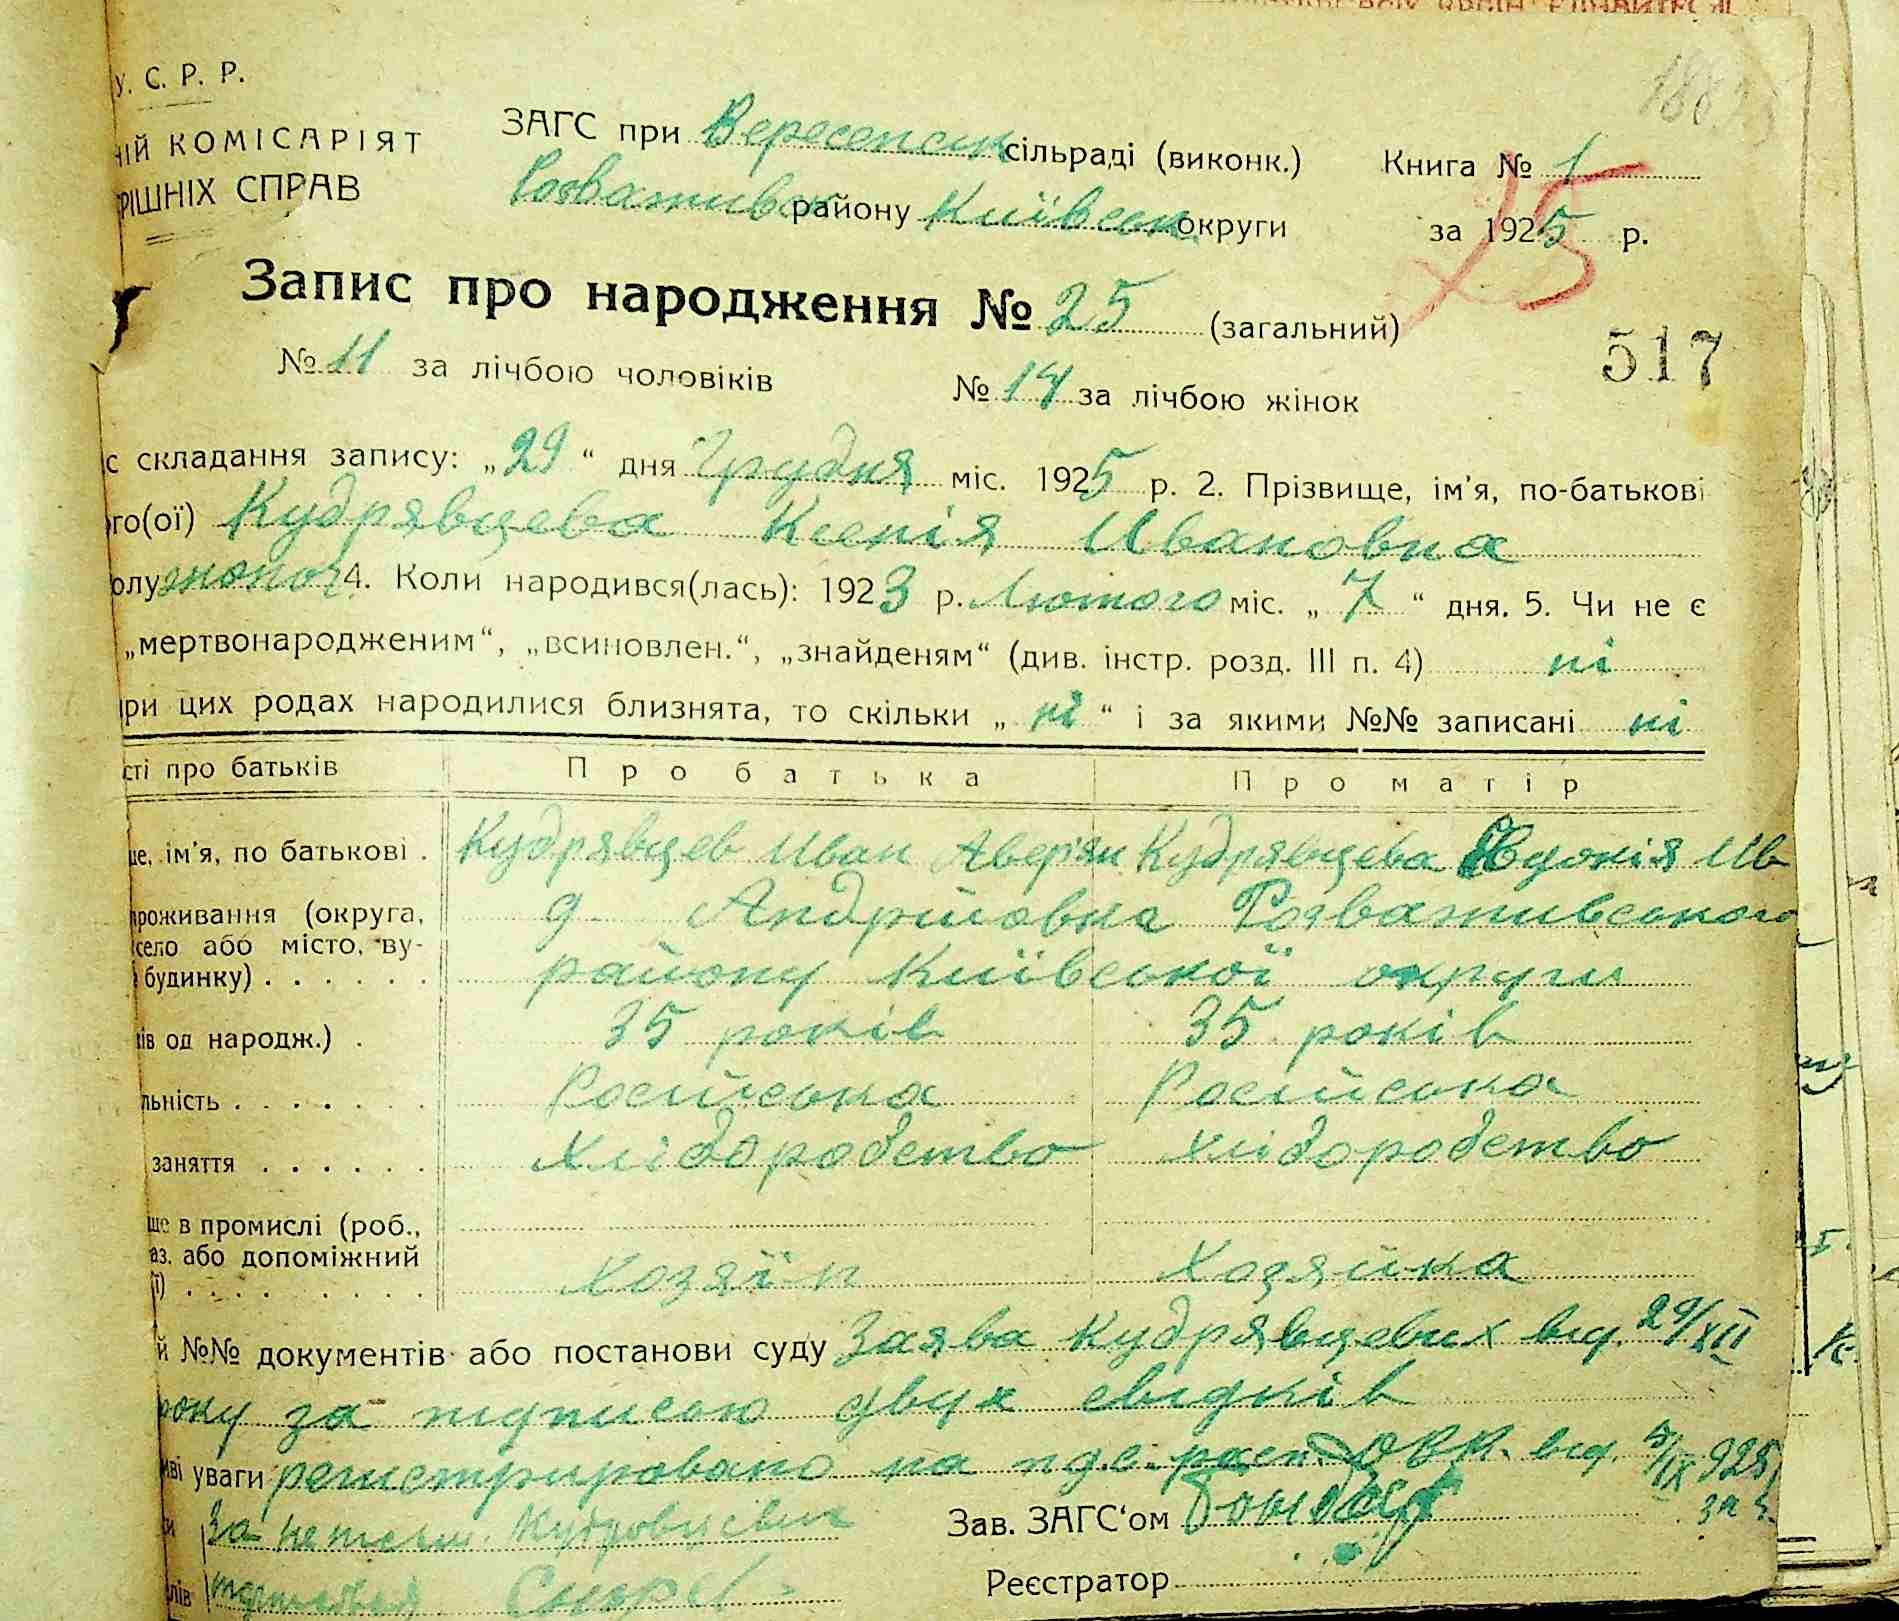 У. С. Р. Р.
НІЙ КОМІСАРІЯТ
РІШНІХ СПРАВ
ЗАГС при Вересенськ сільраді (виконк.) Книга № 1
Розваживськ району Київськ округи за 1925 р.
25
Запис про народження № 25 (загальний)
517
№ 11 за лічбою чоловіків № 14 за лічбою жінок
с складання запису: „29“ дня Грудня міс. 1925 р. 2. Прізвище, ім’я, по-батькові
го(ої) Кудрявцева Ксенія Ивановна
олу жіноч 4. Коли народився(лась): 1923 р. Лютого міс. „7“ дня. 5. Чи не є
„мертвонародженим“, „всиновлен.“, „знайденям“ (див. інстр. розд. III п. 4) ні
ри цих родах народилися близнята, то скільки „ні“ і за якими №№ записані ні
сті про батьків Про батька Про матір
ще, ім’я, по батькові . Кудрявцев Иван Аверіян Кудрявцева Явдокія Ив
проживання (округа, д. Андрійовка Розваживського
село або місто, ву-
будинку) . . . . . . району Київської округи
ків од народж.) . 35 років 35 років
льність . . . . . . . Російська Російська
заняття . . . . . . Хліборобство Хліборобство
ще в промислі (роб.,
аз. або допоміжний
ї) . . . . . . . . . Хозяїн Хозяйка
й №№ документів або постанови суду Заява Кудрявцевих від. 29/XII
року за підписью двух свідків
иві уваги регистрировано на від. 5/IX 925
за
и За Кудровцевих Зав. ЗАГС‘ом
лів Реєстратор